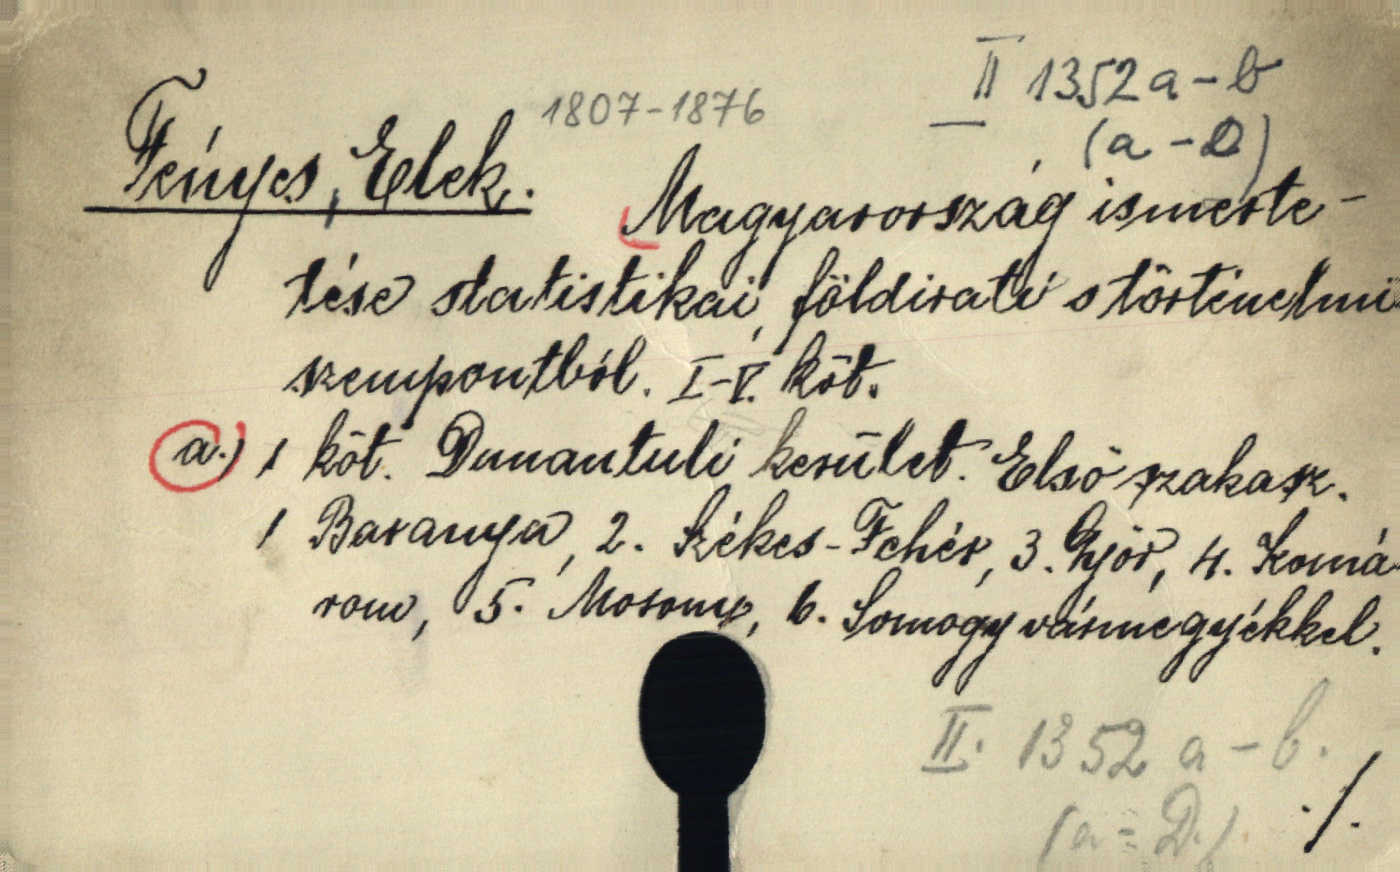 II 1352 a-b
1807-1876
(a-D)
Fényes, Elek.
Magyarország ismerte-
tése statistikai, földirati s történelmi
szempontból. I-V. köt.
a.) 1 köt. Dunantuli kerület. Első szakasz.
1 Baranya, 2. Székes-Fehér, 3. Győr, 4. Komá-
rom, 5. Mosony, 6. Somogy vármegyékkel.
II. 1352 a-b.
(a=D.)
./.